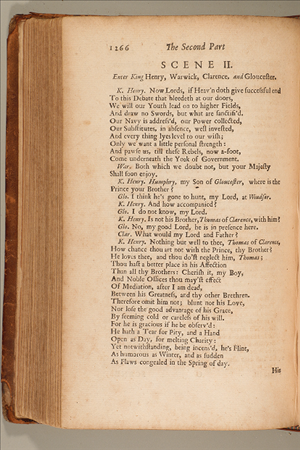 1266 The Second Part
SCENE II.
Enter King Henry, Warwick, Clarence, and Gloucester.
K. Henry. Now Lords, if Heav'n doth give successful end
To this Debate that bleedeth at our doors,
We will our Youth lead on to higher Fields,
And draw no Swords, but what are sanctifi'd.
Our Navy is address'd, our Power collected,
Our Substitutes, in absence, well invested,
And every thing lyes level to our wish;
Only we want a little personal strength:
And pawse us, till these Rebels, now a-foot,
Come underneath the Yoak of Government.
War. Both which we doubt not, but your Majesty
Shall soon enjoy.
K. Henry. Humphry, my Son of Gloucester, where is the
Prince your Brother?
Glo. I think he's gone to hunt, my Lord, at Windsor.
K. Henry. And how accompanied?
Glo. I do not know, my Lord.
K. Henry. Is not his Brother, Thomas of Clarence, with him?
Glo. No, my good Lord, he is in presence here.
Clar. What would my Lord and Father?
K. Henry. Nothing but well to thee, Thomas of Clarence,
How chance thou art not with the Prince, thy Brother?
He loves thee, and thou do'st neglect him, Thomas;
Thou hast a better place in his Affection
Than all thy Brothers: Cherish it, my Boy,
And Noble Offices thou may'st effect
Of Mediation, after I am dead,
Between his Greatness, and thy other Brethren.
Therefore omit him not; blunt not his Love,
Nor lose the good advantage of his Grace,
By seeming cold or careless of his will.
For he is gracious if he be observ'd:
He hath a Tear for Pity, and a Hand
Open as Day, for melting Charity:
Yet notwithstanding, being incens'd, he's Flint,
As humorous as Winter, and as sudden
As Flaws congealed in the Spring of day.
His